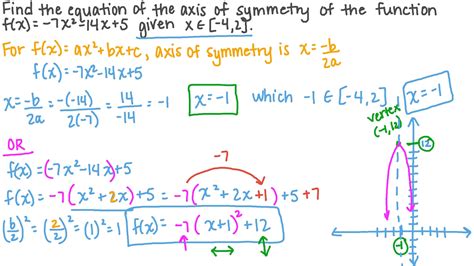 Find the equation of the axis of symmetry of the function
f(x) = -7x²-14x+5 given x ∈ [-4,2].
For f(x) = ax²+bx+c, axis of symmetry is x = -b/2a
f(x) = -7x²-14x+5
x = -b/2a = -(-14)/2(-7) = 14/-14 = -1 x=-1 which -1 ∈ [-4,2] x=-1
vertex
(-1,12)
12
-1
OR
f(x) = (-7x²-14x)+5
-7
f(x) = -7(x²+2x)+5 = -7(x²+2x+1)+5+7
(b/2)² = (2/2)² = (1)² = 1 f(x) = -7(x+1)²+12